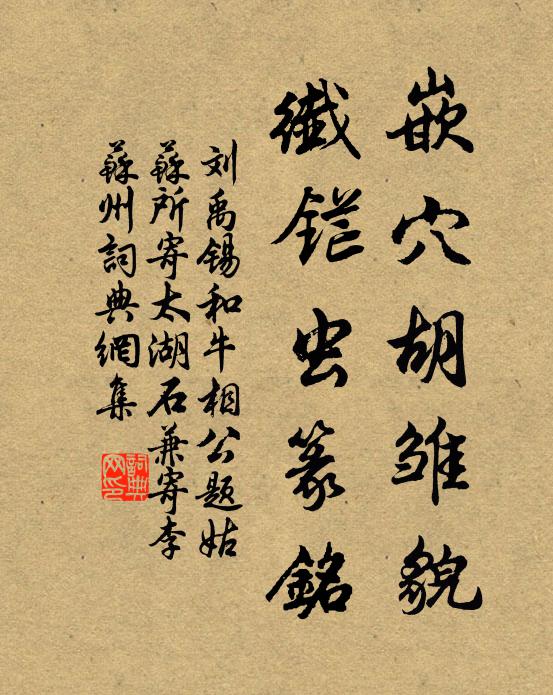 嵌穴胡雏貌
纖铓虫篆銘
刘禹锡和牛相公题姑
蘇所寄太湖石兼寄李
蘇州詞典網集
詞典网印